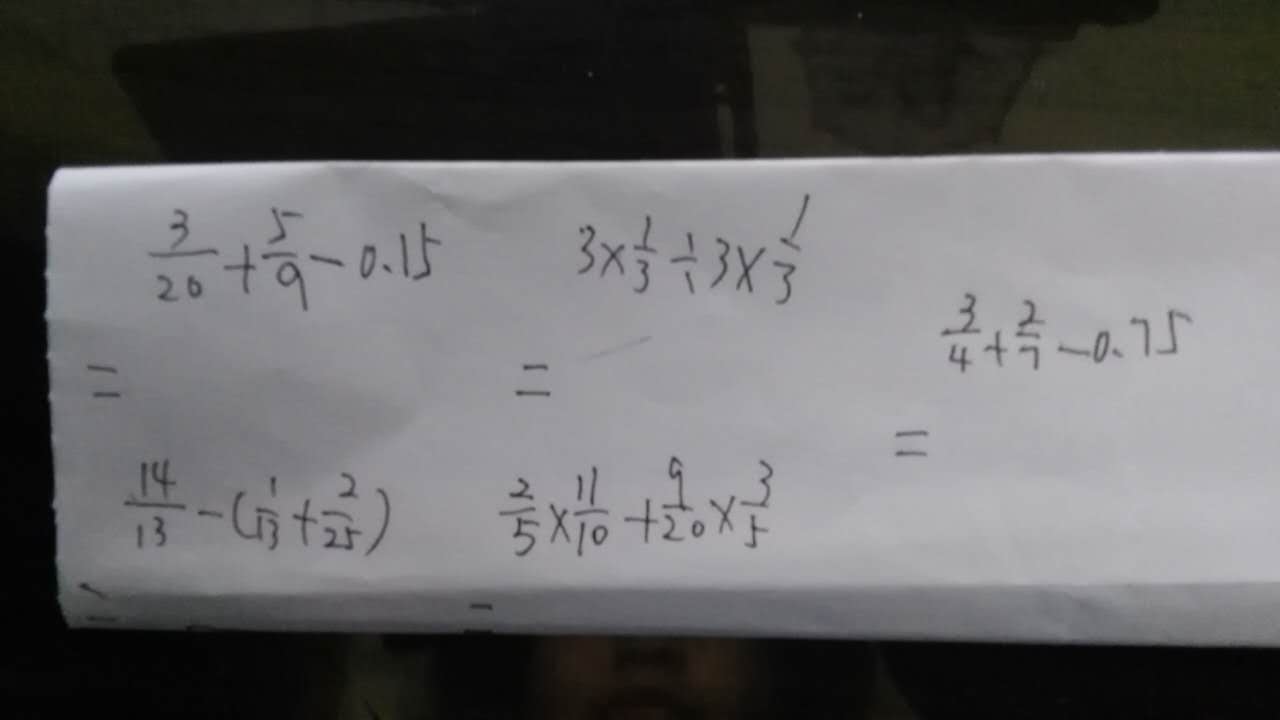 3/20 + 5/9 - 0.15
3 × 1/3 ÷ 3 × 1/3
3/4 + 2/7 - 0.75
=
=
=
14/13 - (1/13 + 2/25)
2/5 × 11/10 + 9/20 × 3/5
=
=